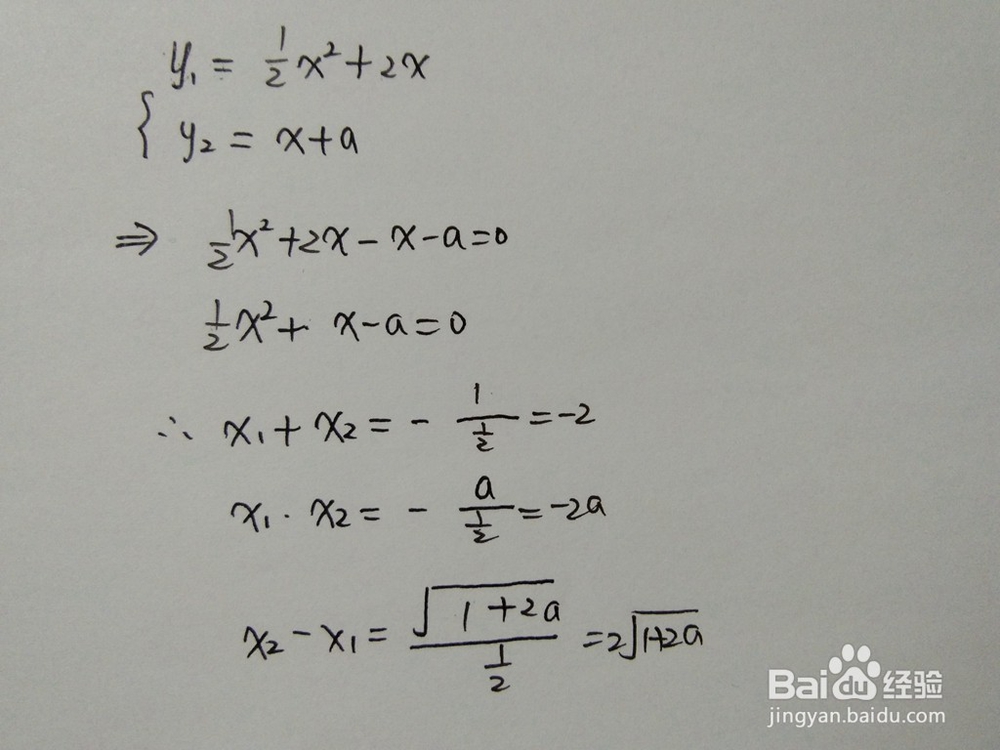 y₁ = 1/2 x² + 2x
{ y₂ = x + a
⇒ 1/2 x² + 2x - x - a = 0
1/2 x² + x - a = 0
∴ x₁ + x₂ = - 1/(1/2) = -2
x₁ · x₂ = - a/(1/2) = -2a
x₂ - x₁ = √(1+2a)/(1/2) = 2√(1+2a)
Baidu经验
jingyan.baidu.com